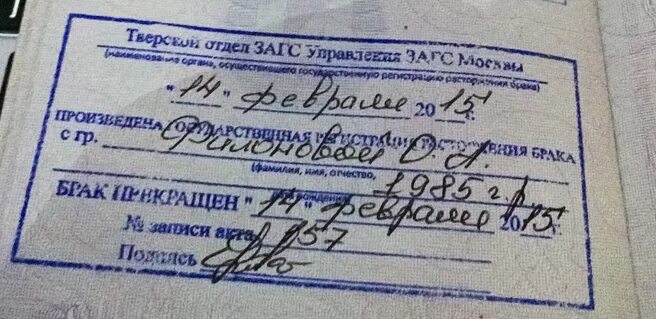 Тверской отдел ЗАГС Управления ЗАГС Москвы
(наименование органа, осуществившего государственную регистрацию расторжения брака)
"14" февраля 2015 г.
ПРОИЗВЕДЕНА ГОСУДАРСТВЕННАЯ РЕГИСТРАЦИЯ РАСТОРЖЕНИЯ БРАКА
с гр. Филоновой О. А.
(фамилия, имя, отчество,
1985 г.р.
рождения)
БРАК ПРЕКРАЩЕН "14" февраля 2015 г.
№ записи акта 157
Подпись